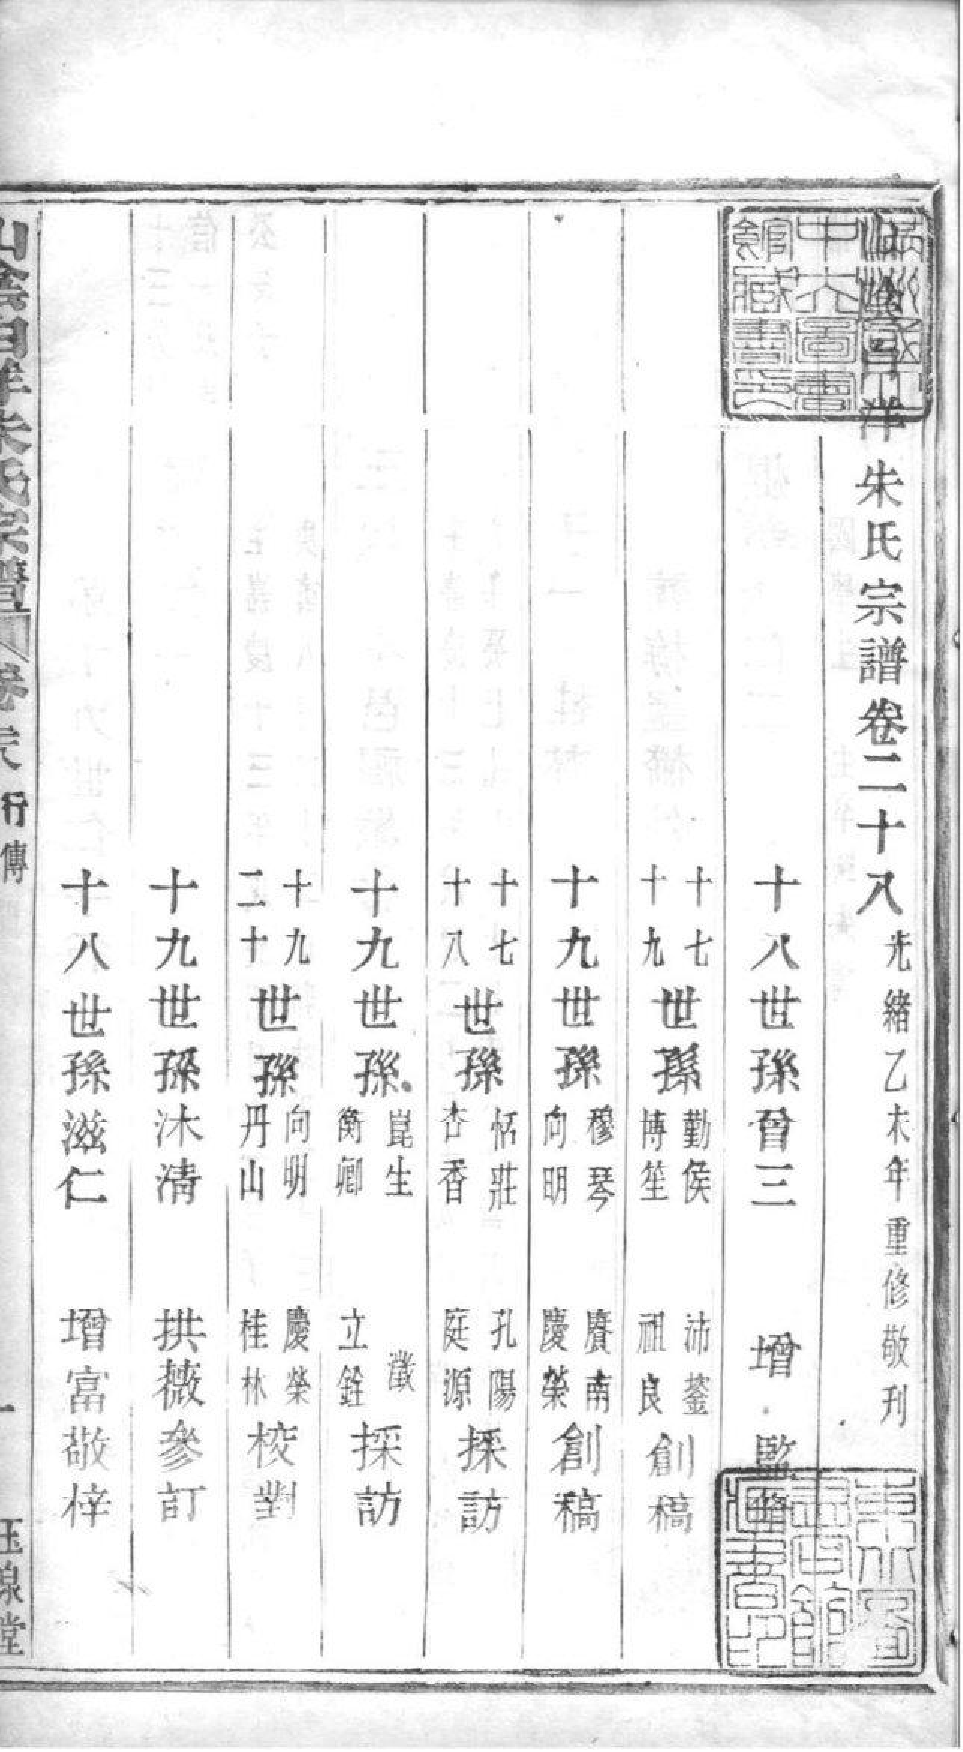 山陰白洋朱氏宗譜卷二十八 光緒乙未年重修敬刊
十八世孫曾三 增 監修
十七十九世孫勤侯博笙 沛鋆祖良創稿
十九世孫穆琴向明 賡南慶榮創稿
十七十八世孫恬莊杏香 孔陽庭源採訪
十九世孫崑生衡卿 澂立銓採訪
十九二十世孫向明丹山 慶榮桂林校對
十九世孫沐清 拱薇參訂
十八世孫滋仁 增富敬梓
山陰白洋朱氏宗譜 卷 行傳 一 玉泉堂
東北圖書館藏書印